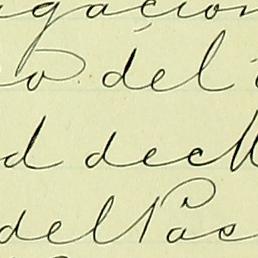 gacion
o del
d de M
del Pas